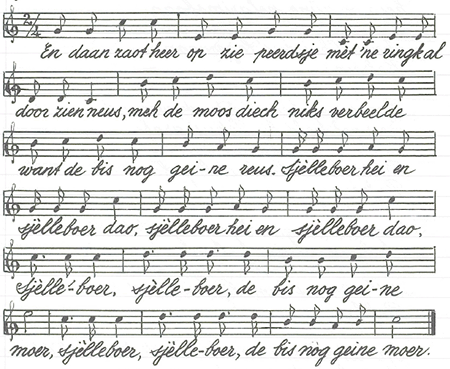 2/4
En daan zaot heer op zie peerdsje mèt 'ne ringk al
door zien neus, meh de moos diech niks verbeelde
want de bis nog gei-ne reus. Sjèlleboer hei en
sjèlleboer dao, sjèlleboer hei en sjèlleboer dao,
Sjèlle-boer, sjèlle-boer, de bis nog gei-ne
moer, sjèlleboer, sjèlle-boer, de bis nog geine moer.